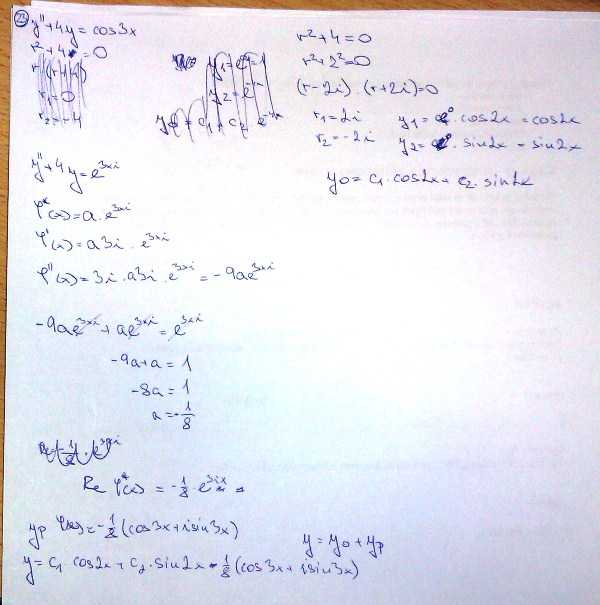 23 y''+4y=cos3x
r²+4=0
r₁=0
r₂=-4
y₂=e
y₀=c₁+c₂ e
r²+4=0
r²+2²=0
(r-2i)·(r+2i)=0
r₁=2i y₁=e⁰·cos2x=cos2x
r₂=-2i y₂=e⁰·sin2x=sin2x
y₀=c₁·cos2x+c₂·sin2x
y''+4y=e^3xi
φ*(x)=a·e^3xi
φ'(x)=a3i·e^3xi
φ''(x)=3i·a3i·e^3xi=-9ae^3xi
-9ae^3xi+ae^3xi=e^3xi
-9a+a=1
-8a=1
a=-1/8
Re(-1/8)·(e^3xi)
Re φ*(x)=-1/8·e^3ix=
yp φ(x)=-1/8(cos3x+isin3x)
y=y₀+yp
y=c₁·cos2x+c₂·sin2x-1/8(cos3x+isin3x)